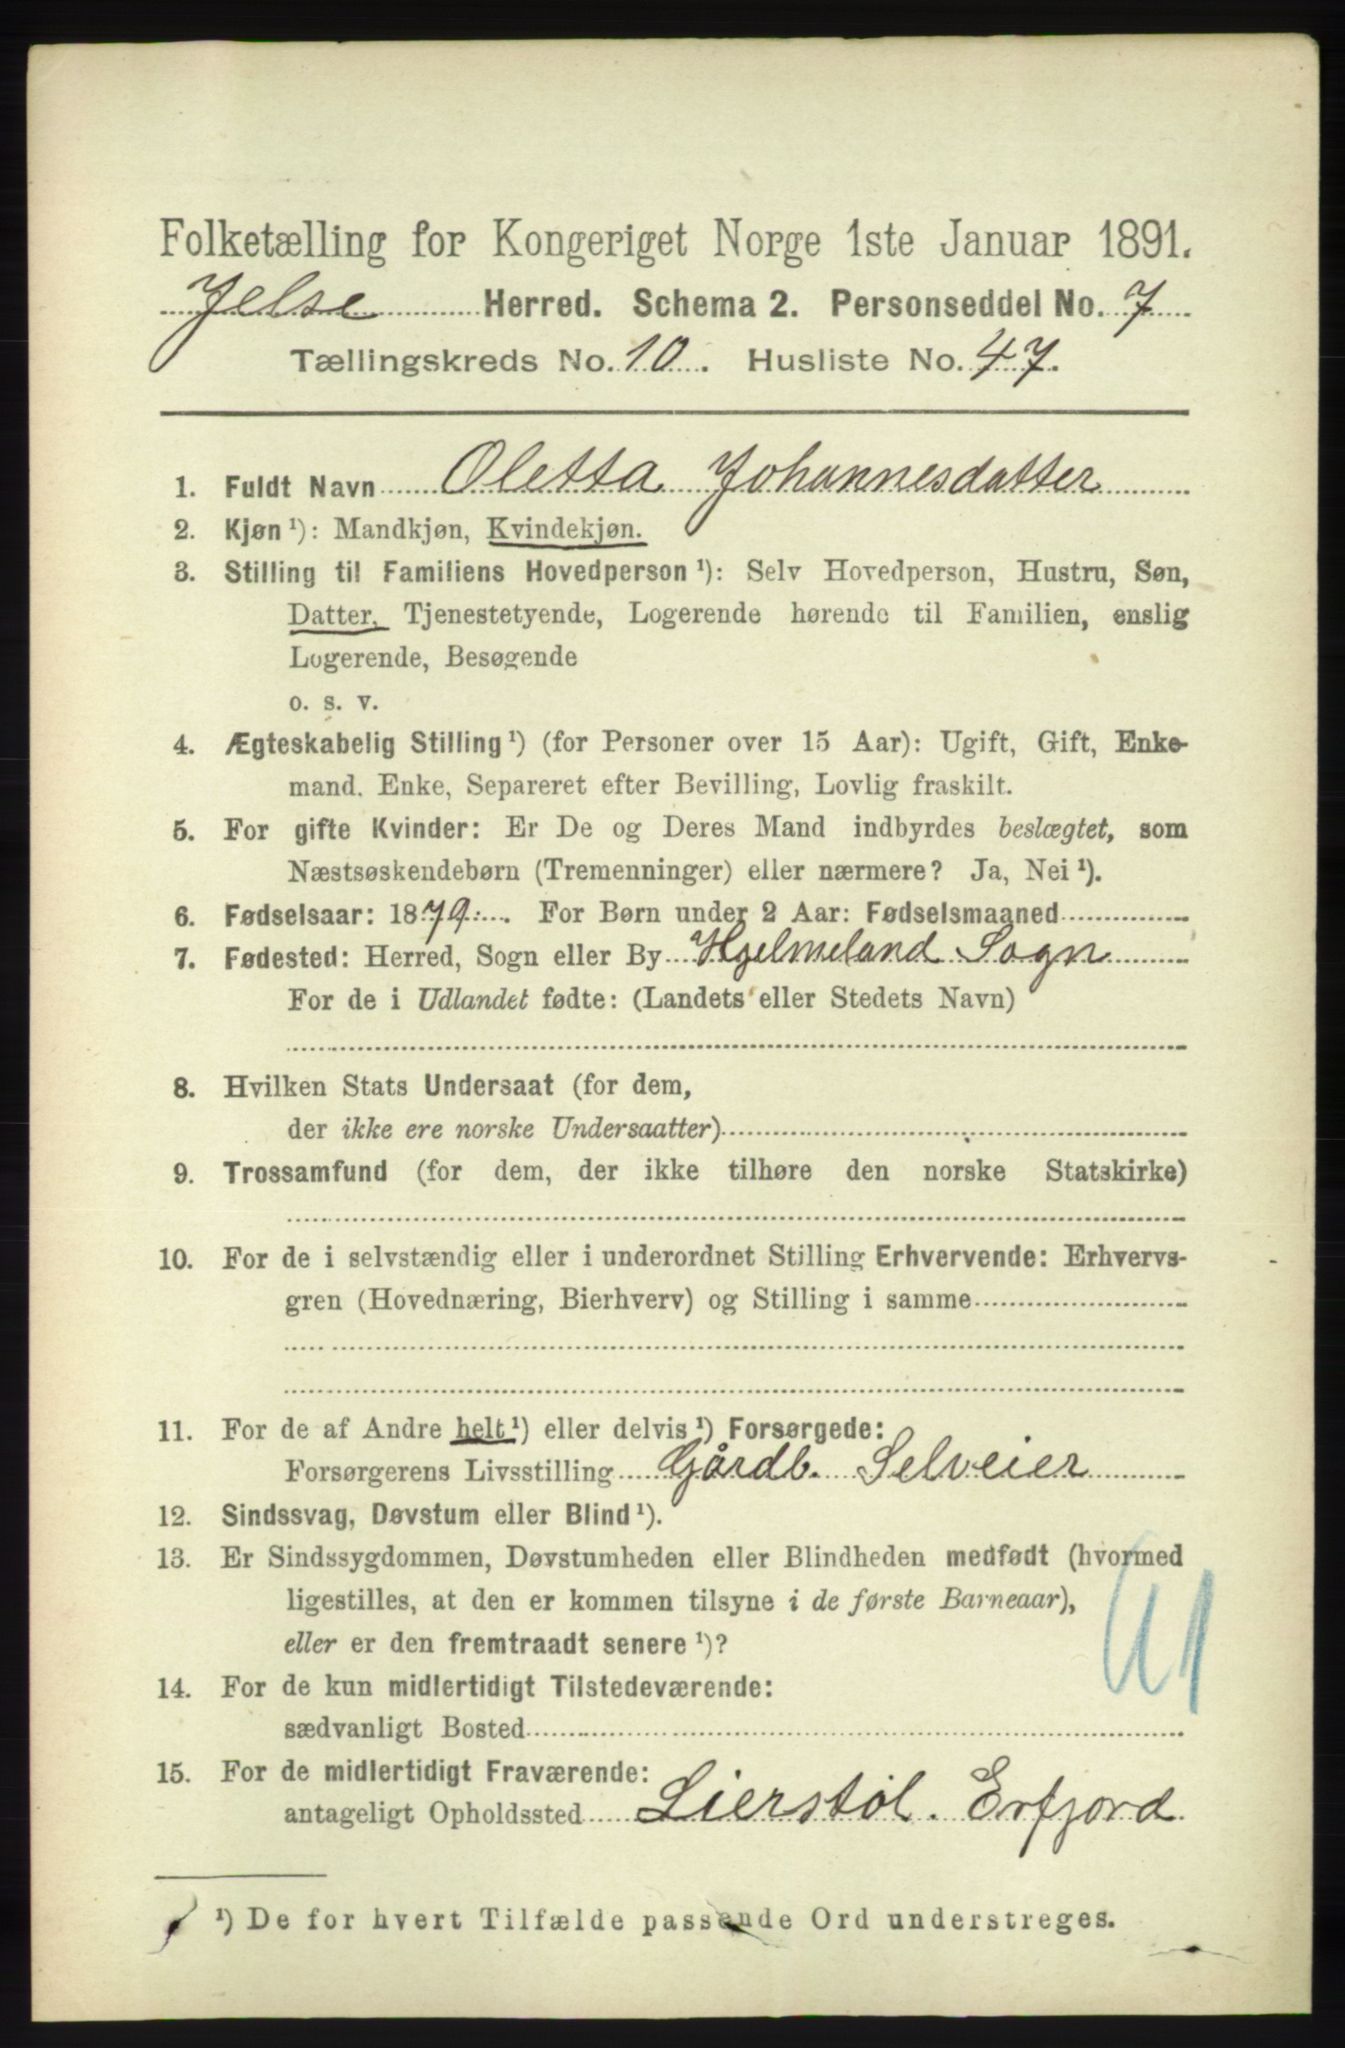 Folketælling for Kongeriget Norge 1ste Januar 1891.
Jelse Herred. Schema 2. Personseddel No. 7
Tællingskreds No. 10. Husliste No. 47.
1. Fuldt Navn Oletta Johannesdatter
2. Kjøn ¹): Mandkjøn, Kvindekjøn.
3. Stilling til Familiens Hovedperson ¹): Selv Hovedperson, Hustru, Søn,
Datter, Tjenestetyende, Logerende hørende til Familien, enslig
Logerende, Besøgende
o. s. v.
4. Ægteskabelig Stilling ¹) (for Personer over 15 Aar): Ugift, Gift, Enke-
mand, Enke, Separeret efter Bevilling, Lovlig fraskilt.
5. For gifte Kvinder: Er De og Deres Mand indbyrdes beslægtet, som
Næstsøskendebørn (Tremenninger) eller nærmere? Ja, Nei ¹).
6. Fødselsaar: 1879. For Børn under 2 Aar: Fødselsmaaned
7. Fødested: Herred, Sogn eller By Hjelmeland Sogn
For de i Udlandet fødte: (Landets eller Stedets Navn)
8. Hvilken Stats Undersaat (for dem,
der ikke ere norske Undersaatter)
9. Trossamfund (for dem, der ikke tilhøre den norske Statskirke)
10. For de i selvstændig eller i underordnet Stilling Erhvervende: Erhvervs-
gren (Hovednæring, Bierhverv) og Stilling i samme
11. For de af Andre helt ¹) eller delvis ¹) Forsørgede:
Forsørgerens Livsstilling Gårdb. Selveier
12. Sindssvag, Døvstum eller Blind ¹).
13. Er Sindssygdommen, Døvstumheden eller Blindheden medfødt (hvormed
ligestilles, at den er kommen tilsyne i de første Barneaar),
eller er den fremtraadt senere ¹)?
14. For de kun midlertidigt Tilstedeværende:
sædvanligt Bosted
15. For de midlertidigt Fraværende:
antageligt Opholdssted Lierstøl. Erfjord
¹) De for hvert Tilfælde passende Ord understreges.